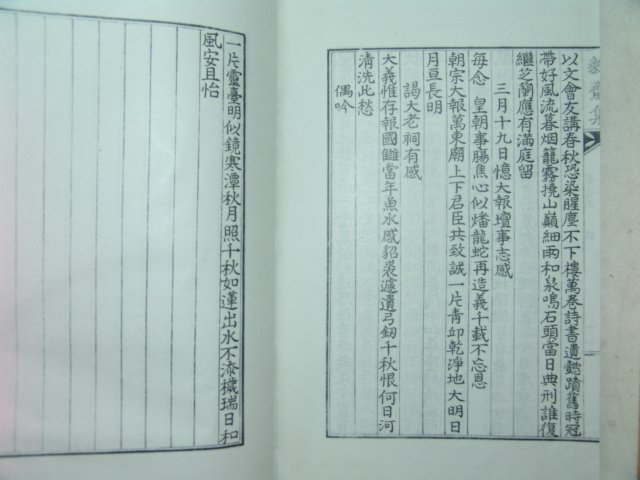 以文會友講春秋恐染腥塵不下樓萬卷詩書遺懿蹟舊時冠
帶好風流暮烟籠霧撓山巓細雨和泉鳴石頭當日典刑誰復
繼芝蘭應有滿庭留
三月十九日憶大報壇事志感
每念 皇朝事膓焦心似燔龍蛇再造義千載不忘恩
朝宗大報萬東廟上下君臣共致誠一片靑邱乾淨地大明日
月亘長明
謁大老祠有感
大義惟存報國讎當年魚水感貂裘遽遺弓釼千秋恨何日河
清洗此愁
偶吟
一片靈臺明似鏡寒潭秋月照千秋如蓮出水不滓穢瑞日和
風安且怡